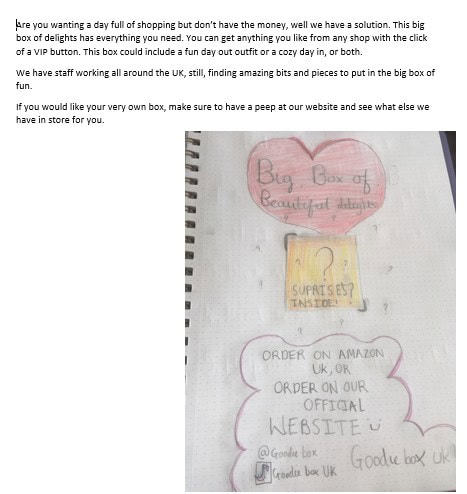 Are you wanting a day full of shopping but don't have the money, well we have a solution. This big
box of delights has everything you need. You can get anything you like from any shop with the click
of a VIP button. This box could include a fun day out outfit or a cozy day in, or both.
We have staff working all around the UK, still, finding amazing bits and pieces to put in the big box of
fun.
If you would like your very own box, make sure to have a peep at our website and see what else we
have in store for you.
Big Box of
Beautiful delights
?
SUPRISES?
INSIDE!
ORDER ON AMAZON
UK, OR
ORDER ON OUR
OFFICIAL
WEBSITE
@Goodie box
Goodie box UK
Goodie box UK